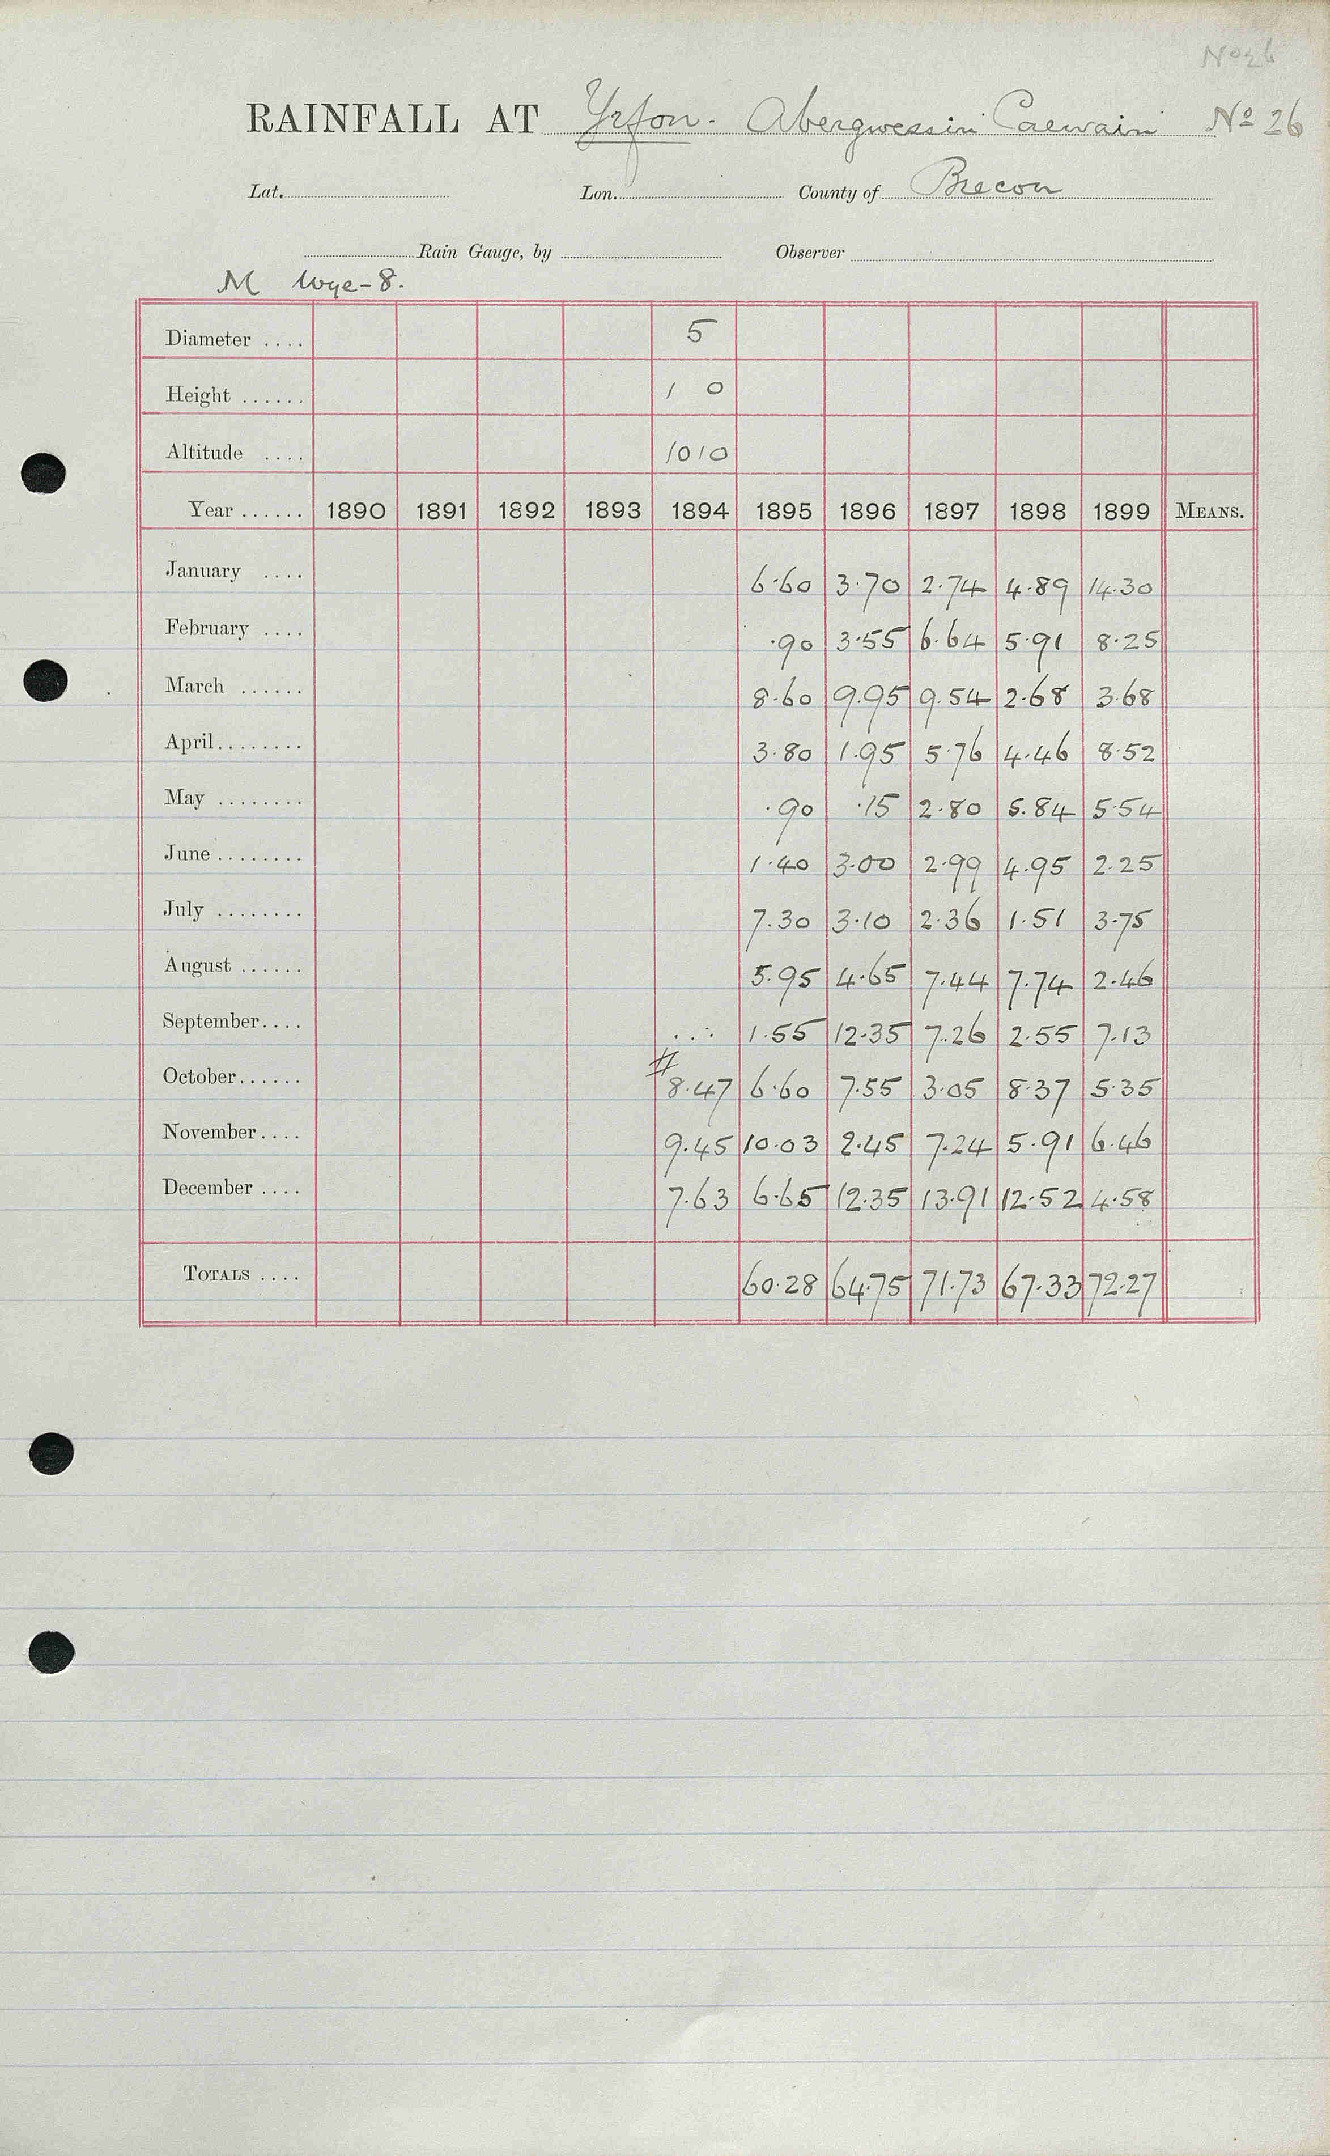 No 26
RAINFALL AT Yrfon - Abergwessin Caerwain No 26
Lat. Lon. County of Brecon
Rain Gauge, by Observer
M Wye-8.
Diameter .... 5
Height ...... 1 0
Altitude .... 1010
Year ...... 1890 1891 1892 1893 1894 1895 1896 1897 1898 1899 MEANS.
January .... 6.60 3.70 2.74 4.89 14.30
February .... .90 3.55 6.64 5.91 8.25
March ...... 8.60 9.95 9.54 2.68 3.68
April........ 3.80 1.95 5.76 4.46 8.52
May ........ .90 .15 2.80 5.84 5.54
June ........ 1.40 3.00 2.99 4.95 2.25
July ........ 7.30 3.10 2.36 1.51 3.75
August ...... 5.95 4.65 7.44 7.74 2.46
September.... ... 1.55 12.35 7.26 2.55 7.13
October...... # 8.47 6.60 7.55 3.05 8.37 5.35
November.... 9.45 10.03 2.45 7.24 5.91 6.46
December .... 7.63 6.65 12.35 13.91 12.52 4.58
TOTALS .... 60.28 64.75 71.73 67.33 72.27